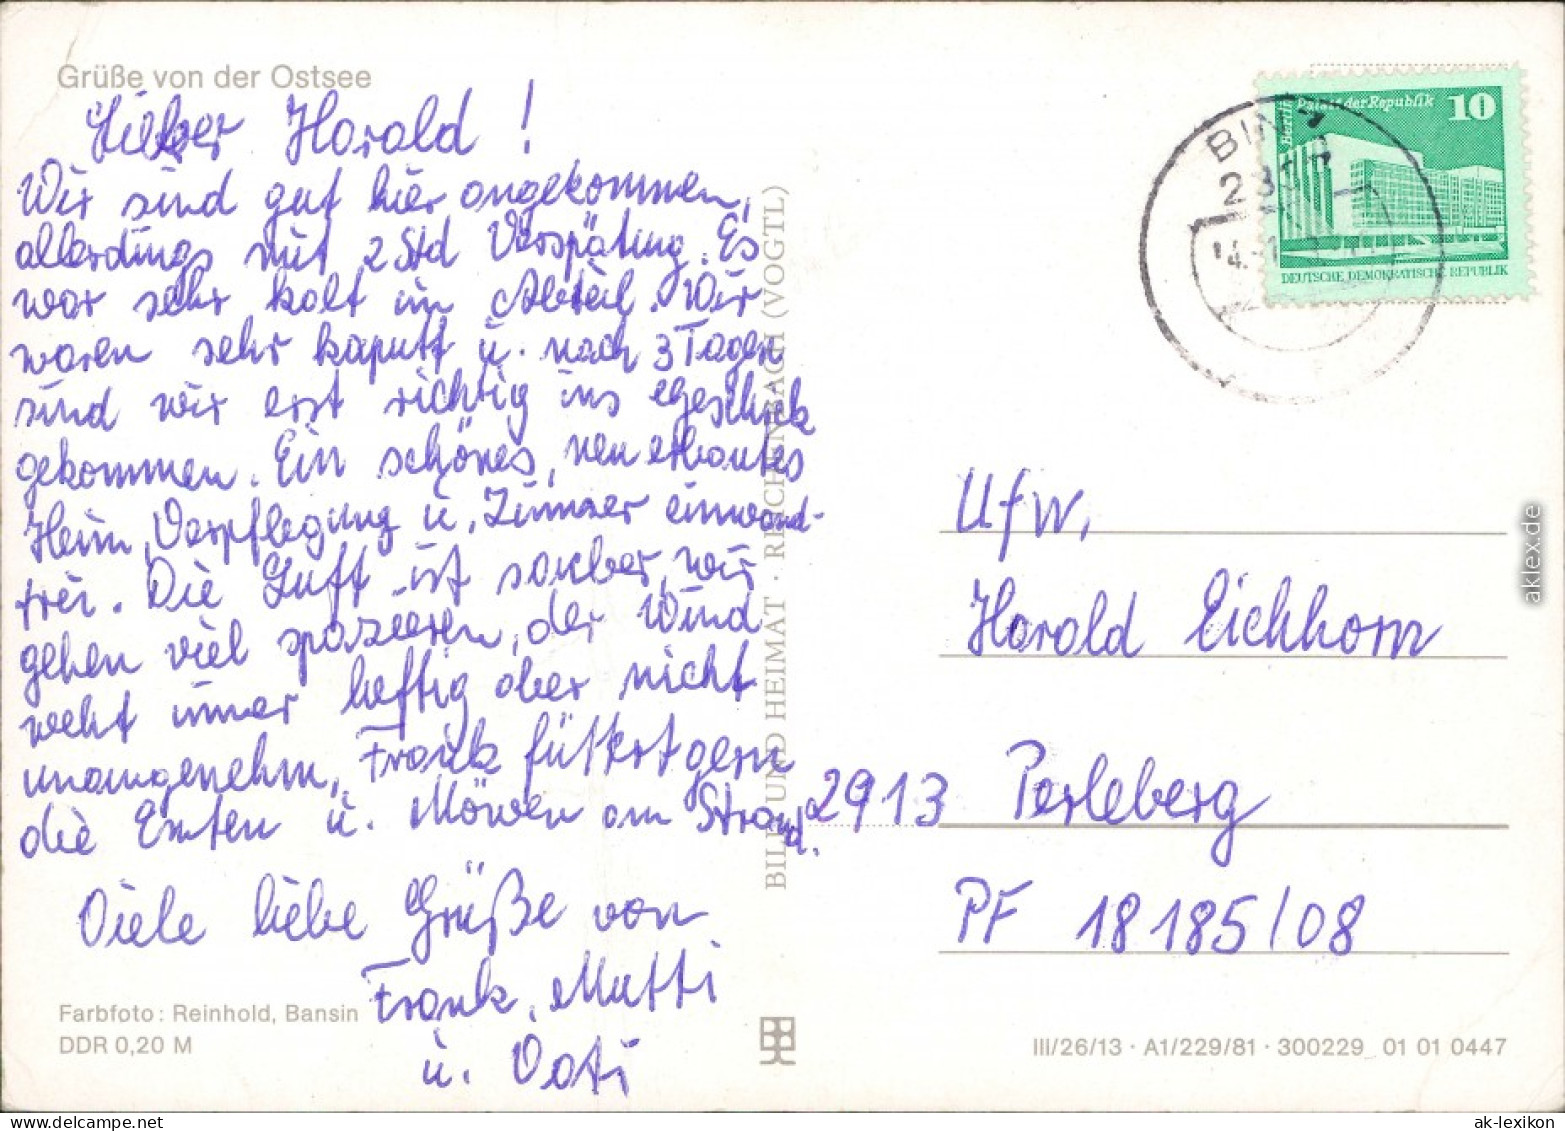 Grüße von der Ostsee
Lieber Harald!
Wir sind gut hier angekommen,
allerdings mit 2 Std Verspätung. Es
war sehr kalt im Abteil. Wir
waren sehr kaputt u. nach 3 Tagen
sind wir erst richtig ins Geschick
gekommen. Ein schönes, neu erbautes
Heim, Verpflegung u. Zimmer einwand-
frei. Die Luft ist sauber, wir
gehen viel spazieren, der Wind
weht immer heftig aber nicht
unangenehm. Frank füttert gern
die Enten u. Möwen am Strand.
Viele liebe Grüße von
Frank, Mutti
u. Vati
Farbfoto: Reinhold, Bansin
DDR 0,20 M
BILD UND HEIMAT · REICHENBACH (VOGTL)
Berlin Palast der Republik 10
DEUTSCHE DEMOKRATISCHE REPUBLIK
Ufw.
Harald Eichhorn
2913 Perleberg
PF 18185/08
III/26/13 · A1/229/81 · 300229 01 01 0447
aklex.de
ak-lexikon